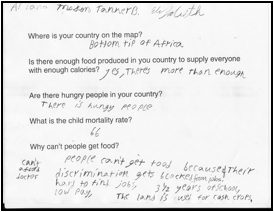 Mason Tanner B.
Where is your country on the map?
Bottom tip of Africa
Is there enough food produced in you country to supply everyone
with enough calories? yes, theres more than enough
Are there hungry people in your country?
There is hungry people
What is the child mortality rate?
66
Why can't people get food?
can't afford doctor
people can't get food because Their
discrimination gets blocked from jobs!
hard to find jobs, 3½ years of school,
low pay, The land is used for cash crops